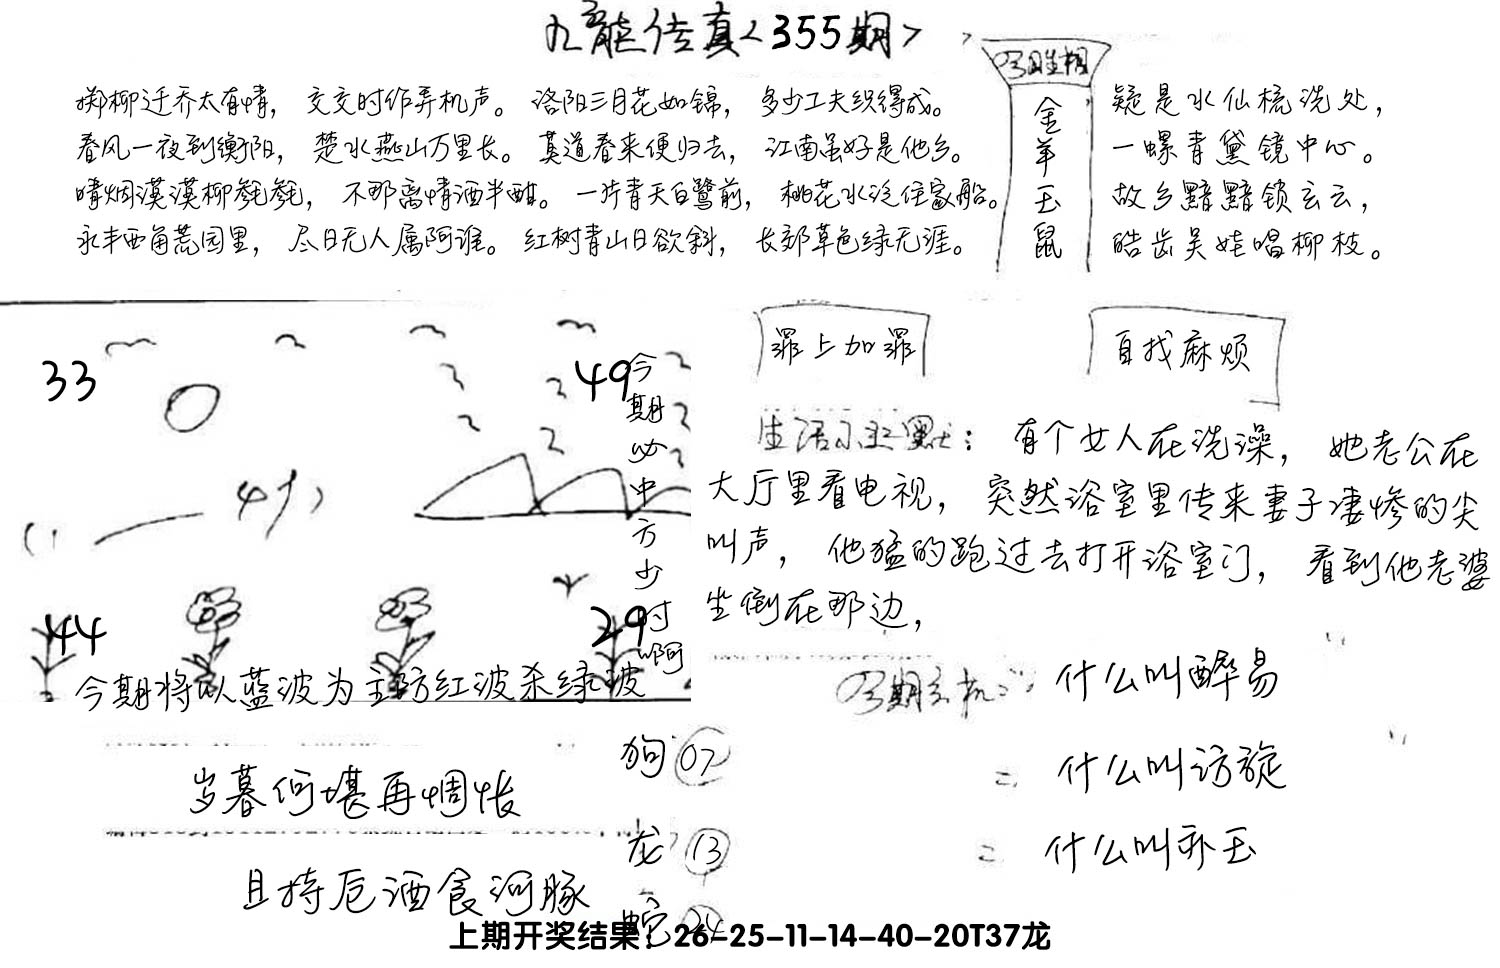 九龙传真<355期>
掷柳迁乔太有情，交交时作弄机声。洛阳三月花如锦，多少工夫织得成。
春风一夜到衡阳，楚水燕山万里长。莫道春来便归去，江南虽好是他乡。
晴烟漠漠柳毵毵，不那离情酒半酣。一片青天白鹭前，桃花水泛住家船。
永丰西角荒园里，尽日无人属阿谁。红树青山日欲斜，长郊草色绿无涯。
金羊玉鼠
疑是水仙梳洗处，
一螺青黛镜中心。
故乡黯黯锁玄云，
皓齿吴娃唱柳枝。
33
49
今期必中方少付啊
44
29
今期将以蓝波为主防红波杀绿波
罪上加罪
自找麻烦
生活小幽默：有个女人在洗澡，她老公在
大厅里看电视，突然浴室里传来妻子凄惨的尖
叫声，他猛的跑过去打开浴室门，看到他老婆
坐倒在那边，
今期玄机：什么叫醉易
= 什么叫访旋
= 什么叫乔玉
岁暮何堪再惆怅
且持卮酒食河豚
狗 07
龙 13
蛇 24
上期开奖结果：26-25-11-14-40-20T37龙